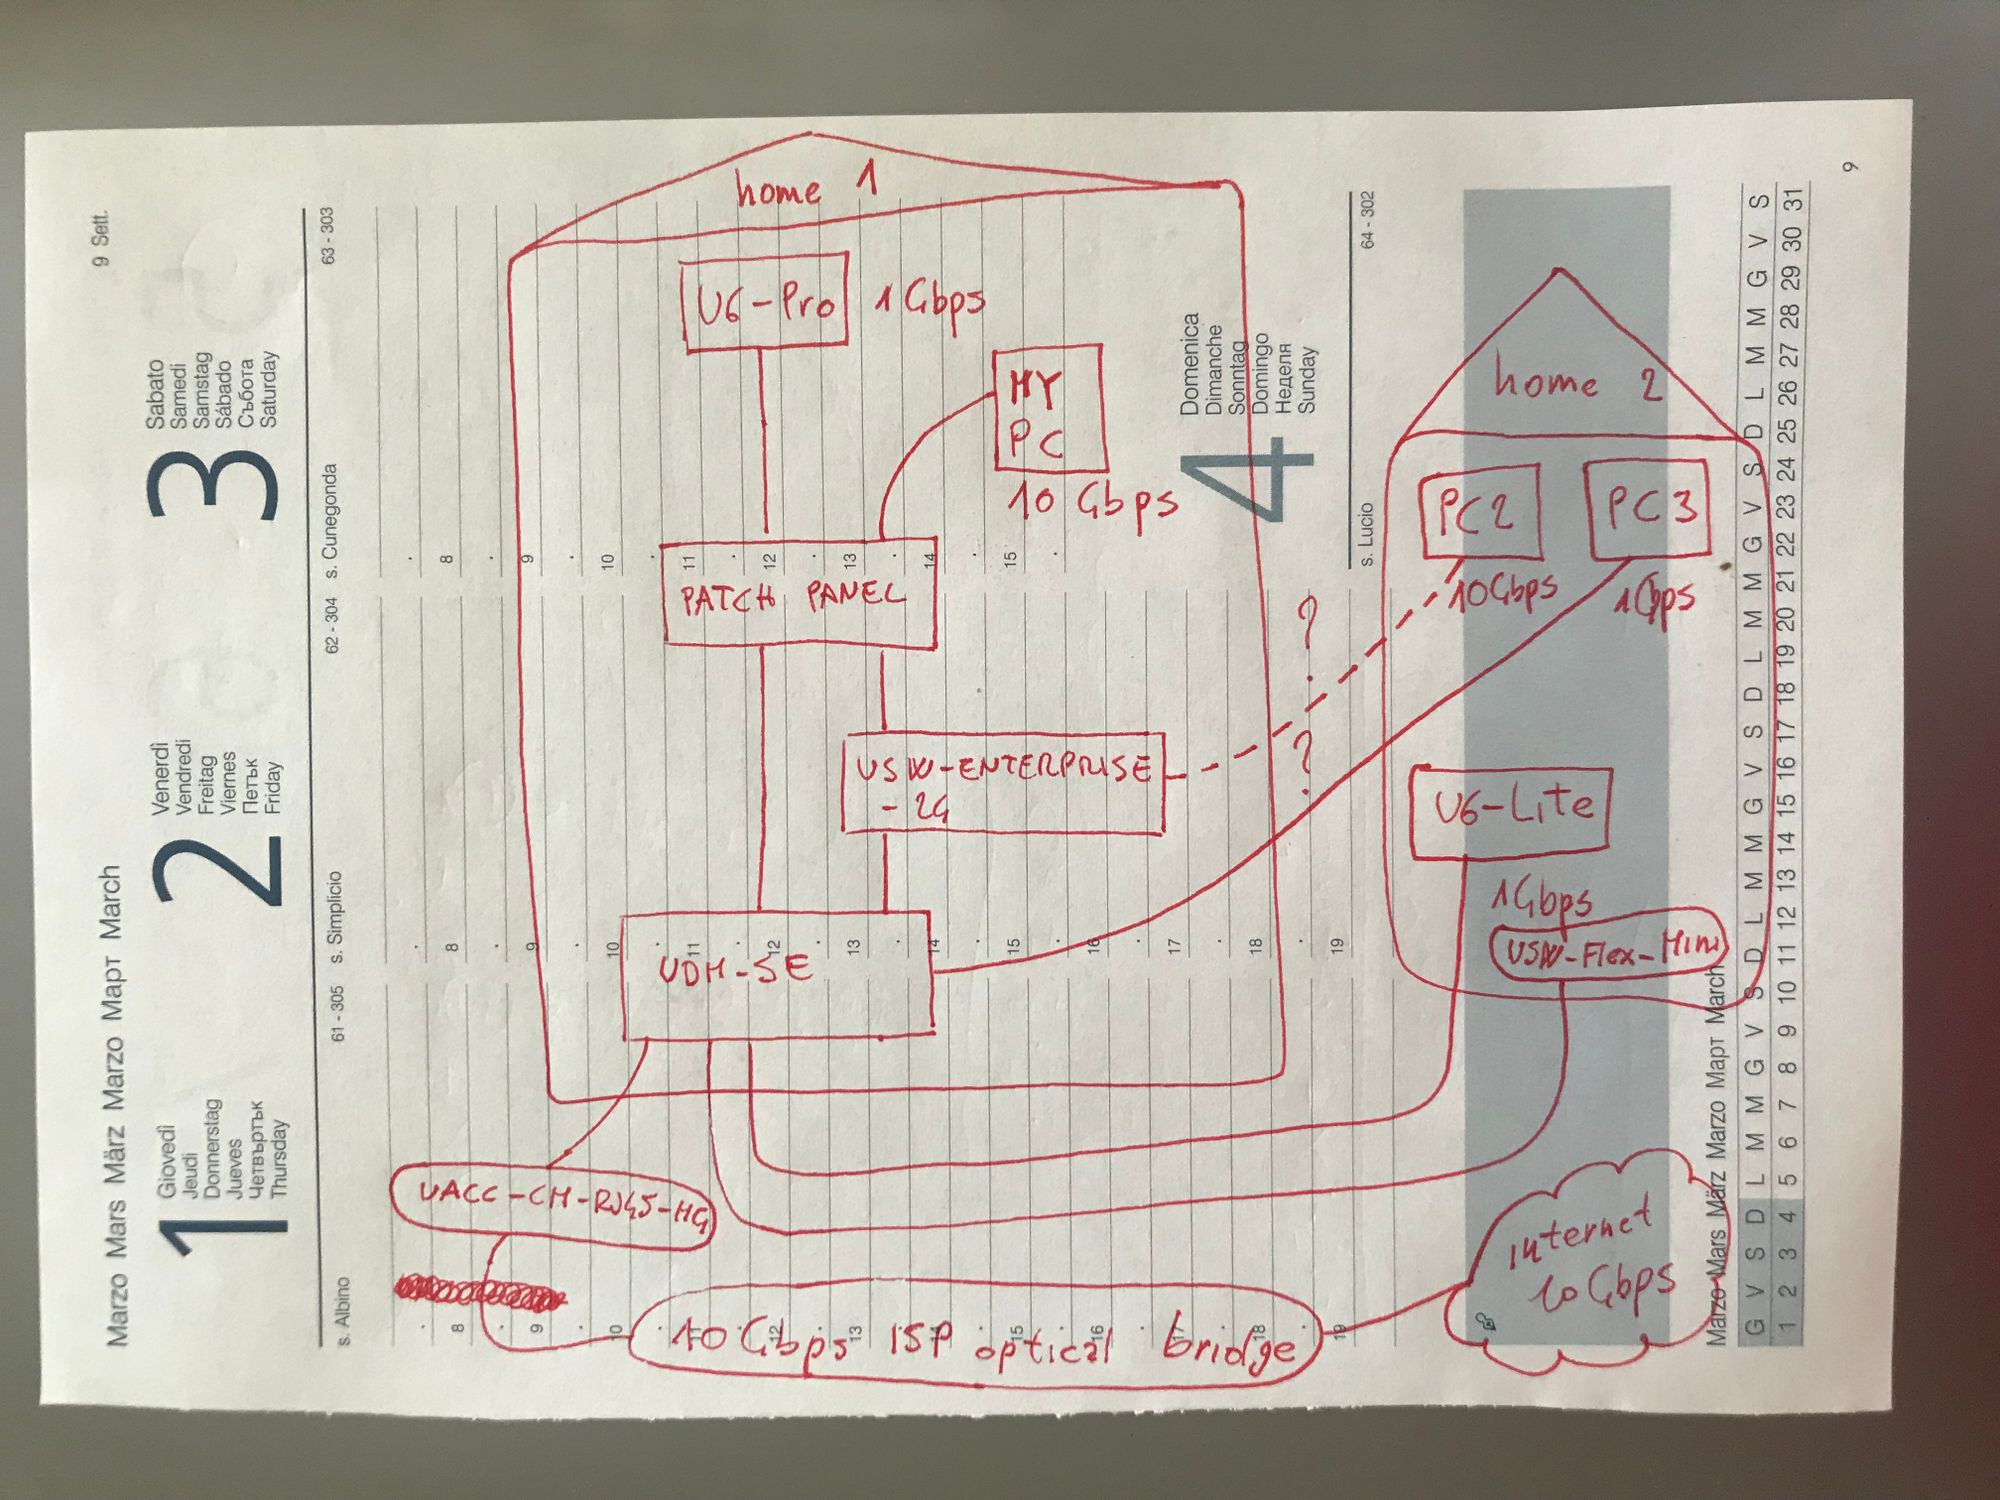 9 Sett.
Marzo Mars März Marzo Март March
1
Giovedì
Jeudi
Donnerstag
Jueves
Четвъртък
Thursday
2
Venerdì
Vendredi
Freitag
Viernes
Петък
Friday
3
Sabato
Samedi
Samstag
Sábado
Събота
Saturday
s. Albino
61 - 305
s. Simplicio
62 - 304
s. Cunegonda
63 - 303
8
9
10
11
12
13
14
15
16
17
18
19
8
9
10
11
12
13
14
15
8
9
11
12
13
14
15
16
17
18
19
4
Domenica
Dimanche
Sonntag
Domingo
Неделя
Sunday
s. Lucio
64 - 302
home 1
U6-Pro
1 Gbps
MY
PC
10 Gbps
PATCH PANEL
USW-ENTERPRISE
- 24
UDM-SE
UACC-CM-RJ45-MG
10 Gbps ISP optical bridge
internet
10 Gbps
home 2
PC2
10 Gbps
PC3
1 Gbps
? ?
U6-Lite
1 Gbps
USW-Flex-Mini
Marzo Mars März Marzo Март March
G V S D L M M G V S D L M M G V S D L M M G V S D L M M G V S
1 2 3 4 5 6 7 8 9 10 11 12 13 14 15 16 17 18 19 20 21 22 23 24 25 26 27 28 29 30 31
9